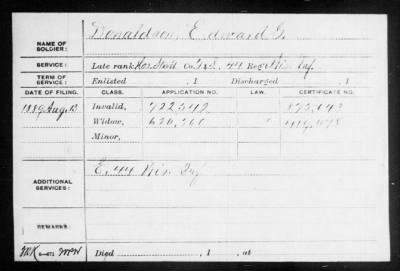 NAME OF SOLDIER: Donaldson, Edward G.
SERVICE: Late rank Hos. Stew'd Co. F&S, 44 Reg't Wis. Inf.
TERM OF SERVICE: Enlisted , 1 Discharged , 1
DATE OF FILING. CLASS. APPLICATION NO. LAW. CERTIFICATE NO.
1889 Aug. 13 Invalid, 722342
Widow, "
Minor,
ADDITIONAL SERVICES: E. 44 Wis. Inf
REMARKS:
Died , 1 , at